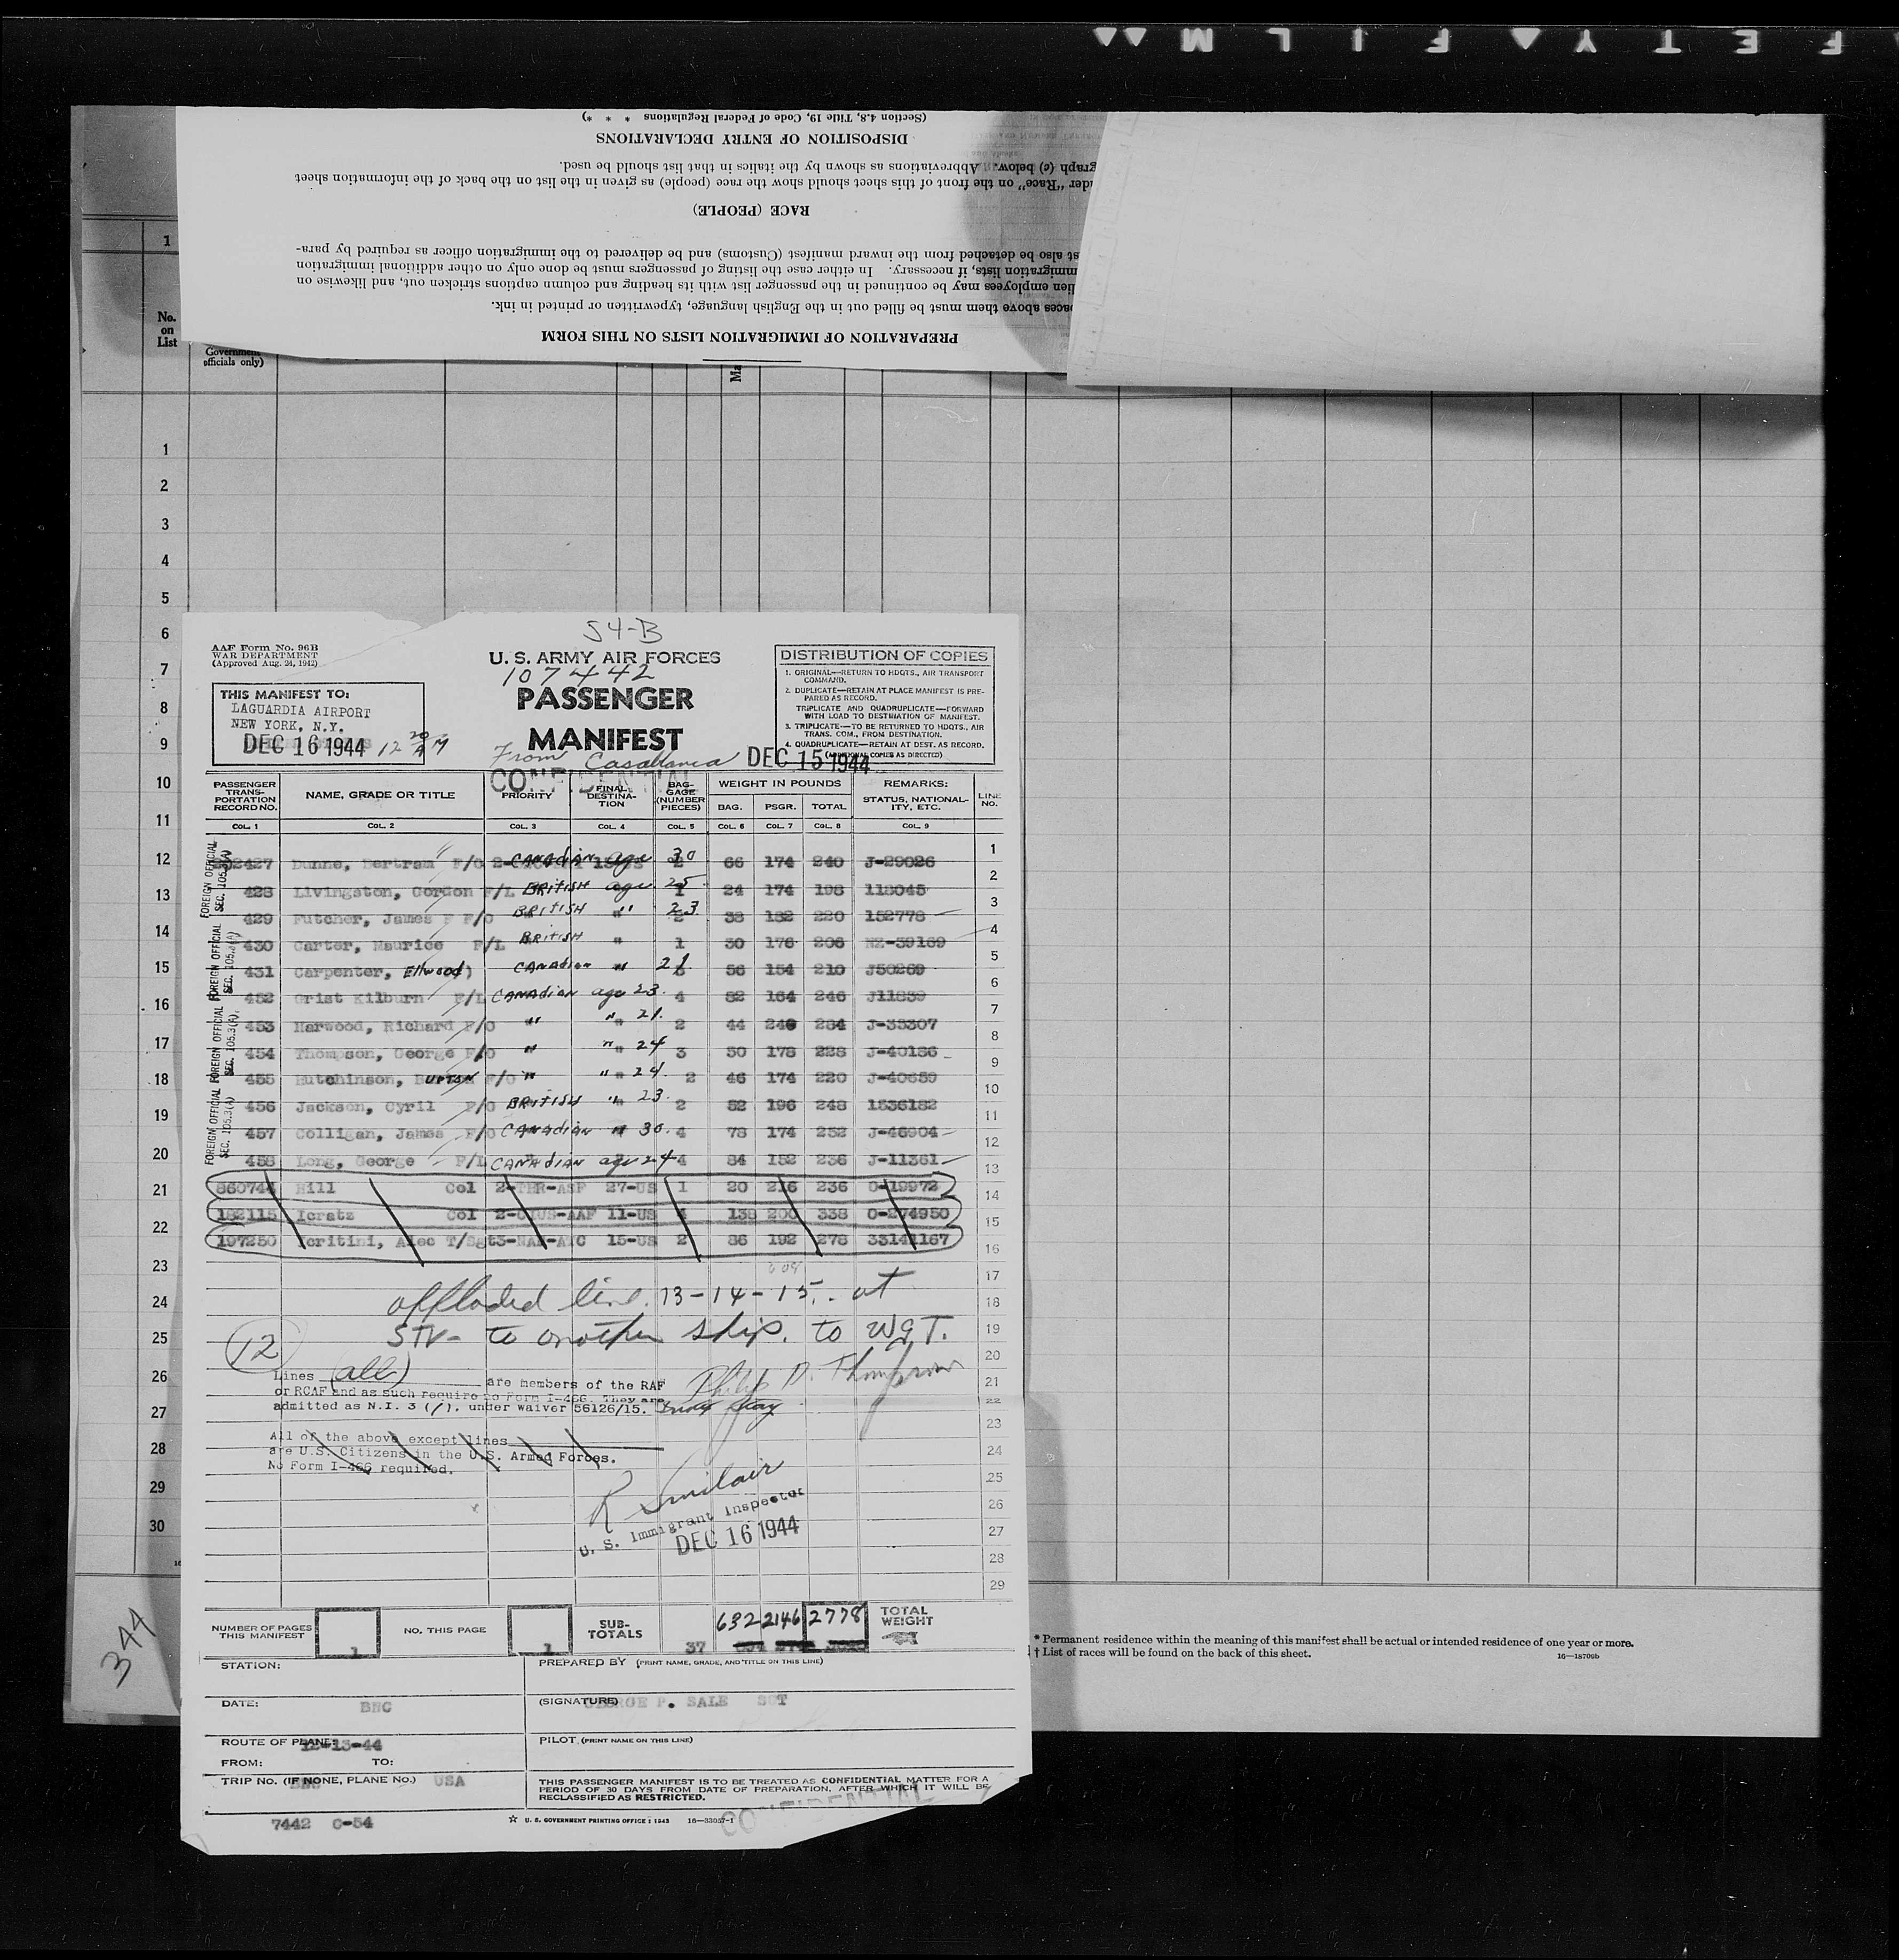 F E T Y ▲ F I L M ▲▲
(Section 4.8, Title 19, Code of Federal Regulations * * *)
DISPOSITION OF ENTRY DECLARATIONS
graph (c) below. Abbreviations as shown by the italics in that list should be used.
under "Race" on the front of this sheet should show the race (people) as given in the list on the back of the information sheet
RACE (PEOPLE)
also be detached from the inward manifest (Customs) and be delivered to the immigration officer as required by para-
immigration lists, if necessary. In either case the listing of passengers must be done only on other additional immigration
employees may be continued in the passenger list with its heading and column captions stricken out, and likewise on
above them must be filled out in the English language, typewritten or printed in ink.
PREPARATION OF IMMIGRATION LISTS ON THIS FORM
1
No. on List
Government officials only)
Ma
1
2
3
4
5
6
7
8
9
10
11
12
13
14
15
16
17
18
19
20
21
22
23
24
25
26
27
28
29
30
344
S4-B
AAF Form No. 96B
WAR DEPARTMENT
(Approved Aug. 24, 1942)
U. S. ARMY AIR FORCES
107442
PASSENGER
MANIFEST
THIS MANIFEST TO:
LAGUARDIA AIRPORT
NEW YORK, N.Y.
DEC 16 1944 12 20 AM
From Casablanca DEC 15 1944
CONFIDENTIAL
DISTRIBUTION OF COPIES
1. ORIGINAL—RETURN TO HDQTS., AIR TRANSPORT COMMAND.
2. DUPLICATE—RETAIN AT PLACE MANIFEST IS PRE-PARED AS RECORD.
TRIPLICATE AND QUADRUPLICATE—FORWARD WITH LOAD TO DESTINATION OF MANIFEST.
3. TRIPLICATE—TO BE RETURNED TO HDQTS., AIR TRANS. COM., FROM DESTINATION.
4. QUADRUPLICATE—RETAIN AT DEST. AS RECORD.
(ADDITIONAL COPIES AS DIRECTED)
PASSENGER TRANS-PORTATION RECORD NO. NAME, GRADE OR TITLE PRIORITY FINAL DESTINA-TION BAG-GAGE (NUMBER PIECES) WEIGHT IN POUNDS REMARKS: LINE NO.
BAG. PSGR. TOTAL STATUS, NATIONAL-ITY, ETC.
COL. 1 COL. 2 COL. 3 COL. 4 COL. 5 COL. 6 COL. 7 COL. 8 COL. 9
FOREIGN OFFICIAL SEC. 105.3(A)
FOREIGN OFFICIAL SEC. 105.3(A)
FOREIGN OFFICIAL SEC. 105.3(A)
FOREIGN OFFICIAL SEC. 105.3(A)
2427 Dunne, Bertram F/O CANADIAN age 30 66 174 240 J-29026 1
428 Livingston, Gordon F/L BRITISH age 25 1 24 174 198 118045 2
429 Futcher, James F F/O BRITISH " 23 2 38 182 220 152778 3
430 Carter, Maurice F/L BRITISH " 1 30 176 206 NZ-39169 4
431 Carpenter, Ellwood) CANADIAN " 21 56 154 210 J50269 5
452 Grist Kilburn F/L CANADIAN age 23. 4 82 164 246 J11839 6
453 Harwood, Richard F/O " " 21. 2 44 240 284 J-35307 7
454 Thompson, George F/O " " 24 3 50 178 228 J-40186 8
455 Hutchinson, BURTON F/O " " 24. 2 46 174 220 J-40659 9
456 Jackson, Cyril F/O BRITISH " 23. 2 52 196 248 1536182 10
457 Colligan, James F/O CANADIAN " 30. 4 78 174 252 J-46904 11
458 Long, George F/L CANADIAN age 24 4 84 152 236 J-11361 12
860744 Hill Col 27-US 1 20 216 236 O-19972 13
182115 Icratz Col 2- US-AAF 11-US 138 200 338 O-274950 14
197250 Icritini, Alec T/Sgt 3-NAF-ATC 15-US 2 86 192 278 33141167 15
16
17
18
19
20
21
22
23
24
25
26
27
28
29
offloaded line. 13-14-15.. at
STV- to another ship. to WGT.
12
Lines (all) are members of the RAF
or RCAF and as such require no Form I-466. They are
admitted as N.I. 3 (1). under waiver 56126/15.
Philip D. Thompson
All of the above except lines
are U.S. Citizens in the U.S. Armed Forces.
No Form I-466 required.
R Sinclair
U. S. Immigrant Inspector
DEC 16 1944
NUMBER OF PAGES THIS MANIFEST 1 NO. THIS PAGE 1 SUB-TOTALS 37 632 2146 2778 TOTAL WEIGHT
STATION: PREPARED BY (PRINT NAME, GRADE, AND TITLE ON THIS LINE)
DATE: BNC (SIGNATURE) GEORGE P. SALE SGT
ROUTE OF PLANE: 12-13-44 PILOT (PRINT NAME ON THIS LINE)
FROM: TO:
TRIP NO. (IF NONE, PLANE NO.) USA
THIS PASSENGER MANIFEST IS TO BE TREATED AS CONFIDENTIAL MATTER FOR A
PERIOD OF 30 DAYS FROM DATE OF PREPARATION, AFTER WHICH IT WILL BE
RECLASSIFIED AS RESTRICTED.
CONFIDENTIAL
7442 C-54
☆ U. S. GOVERNMENT PRINTING OFFICE : 1943 16—33057-1
* Permanent residence within the meaning of this manifest shall be actual or intended residence of one year or more.
† List of races will be found on the back of this sheet.
16—18709b